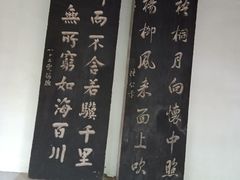 梧桐月向懷中照
楊柳風来面上吹
而不舍若驥千里
無所窮如海百川